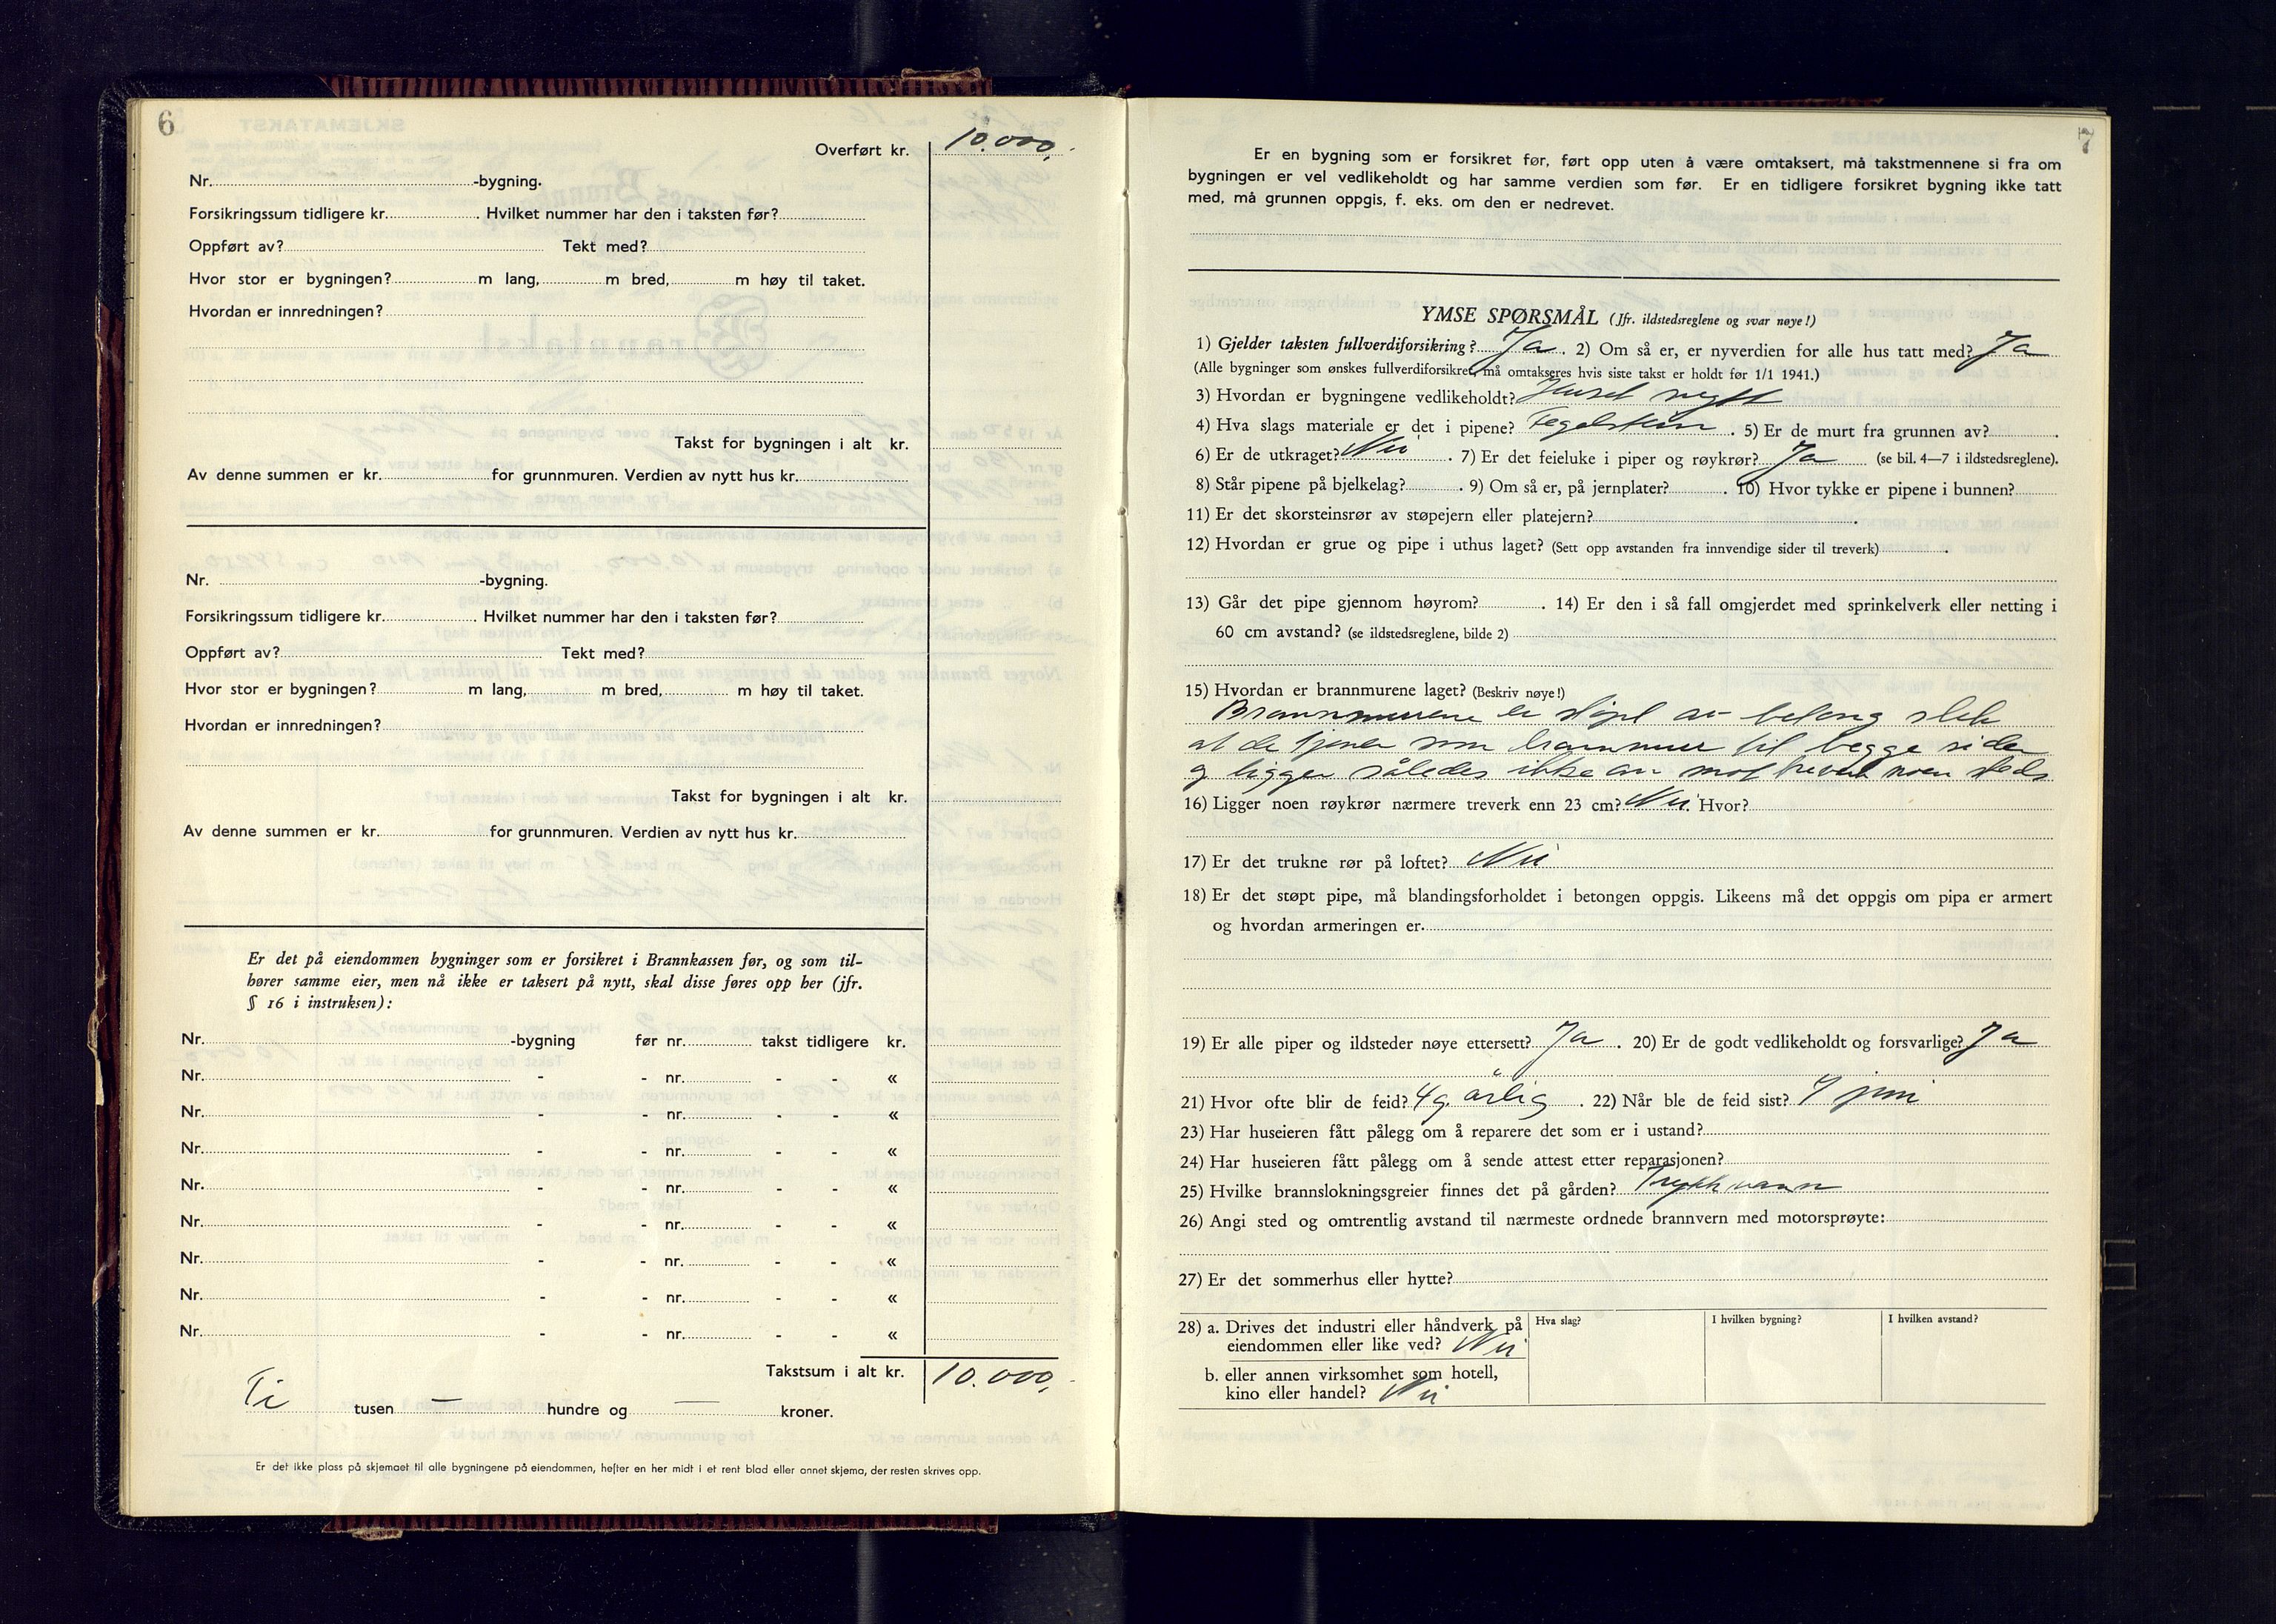 6
Overført kr. 10.000,-
Nr. -bygning.
Forsikringssum tidligere kr. . Hvilket nummer har den i taksten før?
Oppført av? Tekt med?
Hvor stor er bygningen? m lang, m bred, m høy til taket.
Hvordan er innredningen?
Takst for bygningen i alt kr.
Av denne summen er kr. for grunnmuren. Verdien av nytt hus kr.
Nr. -bygning.
Forsikringssum tidligere kr. . Hvilket nummer har den i taksten før?
Oppført av? Tekt med?
Hvor stor er bygningen? m lang, m bred, m høy til taket.
Hvordan er innredningen?
Takst for bygningen i alt kr.
Av denne summen er kr. for grunnmuren. Verdien av nytt hus kr.
Er det på eiendommen bygninger som er forsikret i Brannkassen før, og som til-
hører samme eier, men nå ikke er taksert på nytt, skal disse føres opp her (jfr.
§ 16 i instruksen):
Nr. -bygning før nr. takst tidligere kr.
Nr. - - nr. - - «
Nr. - - nr. - - «
Nr. - - nr. - - «
Nr. - - nr. - - «
Nr. - - nr. - - «
Nr. - - nr. - - «
Nr. - - nr. - - «
Nr. - - nr. - - «
Takstsum i alt kr. 10.000,-
Ti tusen — hundre og — kroner.
Er det ikke plass på skjemaet til alle bygningene på eiendommen, hefter en her midt i et rent blad eller annet skjema, der resten skrives opp.
7
Er en bygning som er forsikret før, ført opp uten å være omtaksert, må takstmennene si fra om
bygningen er vel vedlikeholdt og har samme verdien som før. Er en tidligere forsikret bygning ikke tatt
med, må grunnen oppgis, f. eks. om den er nedrevet.
YMSE SPØRSMÅL (Jfr. ildstedsreglene og svar nøye!)
1) Gjelder taksten fullverdiforsikring? Ja . 2) Om så er, er nyverdien for alle hus tatt med? Ja
(Alle bygninger som ønskes fullverdiforsikret, må omtakseres hvis siste takst er holdt før 1/1 1941.)
3) Hvordan er bygningene vedlikeholdt? Huset nytt
4) Hva slags materiale er det i pipene? Tegelstein . 5) Er de murt fra grunnen av? .
6) Er de utkraget? Nei . 7) Er det feieluke i piper og røykrør? Ja (se bil. 4—7 i ildstedsreglene).
8) Står pipene på bjelkelag? . 9) Om så er, på jernplater? . 10) Hvor tykke er pipene i bunnen?
11) Er det skorsteinsrør av støpejern eller platejern? .
12) Hvordan er grue og pipe i uthus laget? (Sett opp avstanden fra innvendige sider til treverk) .
13) Går det pipe gjennom høyrom? . 14) Er den i så fall omgjerdet med sprinkelverk eller netting i
60 cm avstand? (se ildstedsreglene, bilde 2)
15) Hvordan er brannmurene laget? (Beskriv nøye!)
Brannmurene er støpt av betong slik
at de tjener som brannmur til begge sider
og ligger således ikke an mot treverk noen steds
16) Ligger noen røykrør nærmere treverk enn 23 cm? Nei. Hvor?
17) Er det trukne rør på loftet? Nei
18) Er det støpt pipe, må blandingsforholdet i betongen oppgis. Likeens må det oppgis om pipa er armert
og hvordan armeringen er.
19) Er alle piper og ildsteder nøye ettersett? Ja . 20) Er de godt vedlikeholdt og forsvarlige? Ja
21) Hvor ofte blir de feid? 4 g. årlig . 22) Når ble de feid sist? 7 juni
23) Har huseieren fått pålegg om å reparere det som er i ustand?
24) Har huseieren fått pålegg om å sende attest etter reparasjonen?
25) Hvilke brannslokningsgreier finnes det på gården? Trykkvann
26) Angi sted og omtrentlig avstand til nærmeste ordnede brannvern med motorsprøyte:
27) Er det sommerhus eller hytte?
28) a. Drives det industri eller håndverk på
eiendommen eller like ved? Nei
b. eller annen virksomhet som hotell,
kino eller handel? Nei
Hva slag?
I hvilken bygning?
I hvilken avstand?